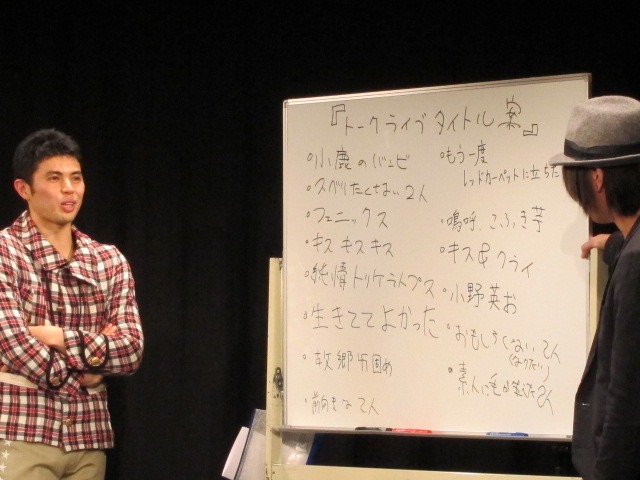 『トークライブタイトル案』
・小鹿のバンビ
・スベりたくない2人
・フェニックス
・キスキスキス
・純情トリケラトプス
・生きててよかった
・故郷が固め
・前向きな2人
・もう一度
レッドカーペットに立ちた
・嗚呼、こふき芋
・キス&クライ
・小野英お
・おもしろくない2人
(なりたい)
・素人に毛が生えた2人